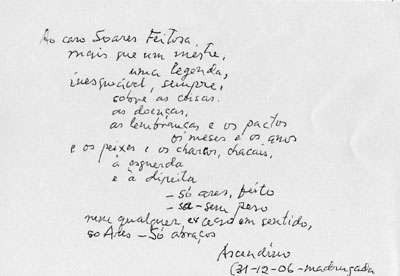 Ao caro Soares Feitosa
mais que um mestre,
uma legenda,
inesgotável, sempre,
sobre as coisas.
as doenças,
as lembranças e os pactos
os meses e os anos
e os peixes e os charcos, chacais,
à esquerda
e à direita
- só ares, feito
- sem peso
nem qualquer excesso em sentido,
so Ares - Só abraços
Ascendino
(31-12-06 - madrugada